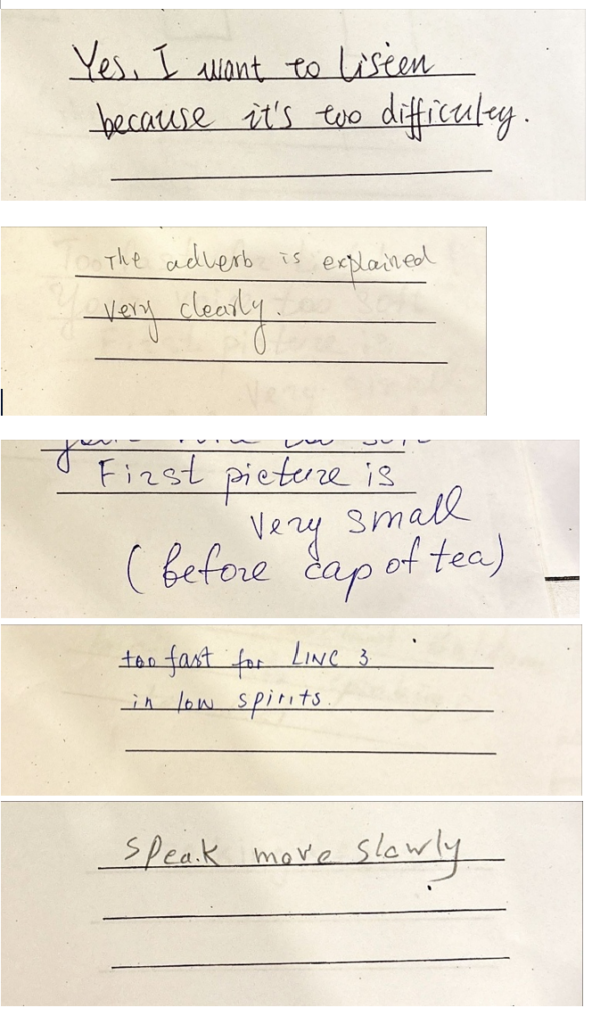 Yes, I want to listen
because it's too difficultey.
The adverb is explained
very clearly.
First picture is
very small
(before cap of tea)
too fast for LINC 3
in low spirits.
Speak more slowly